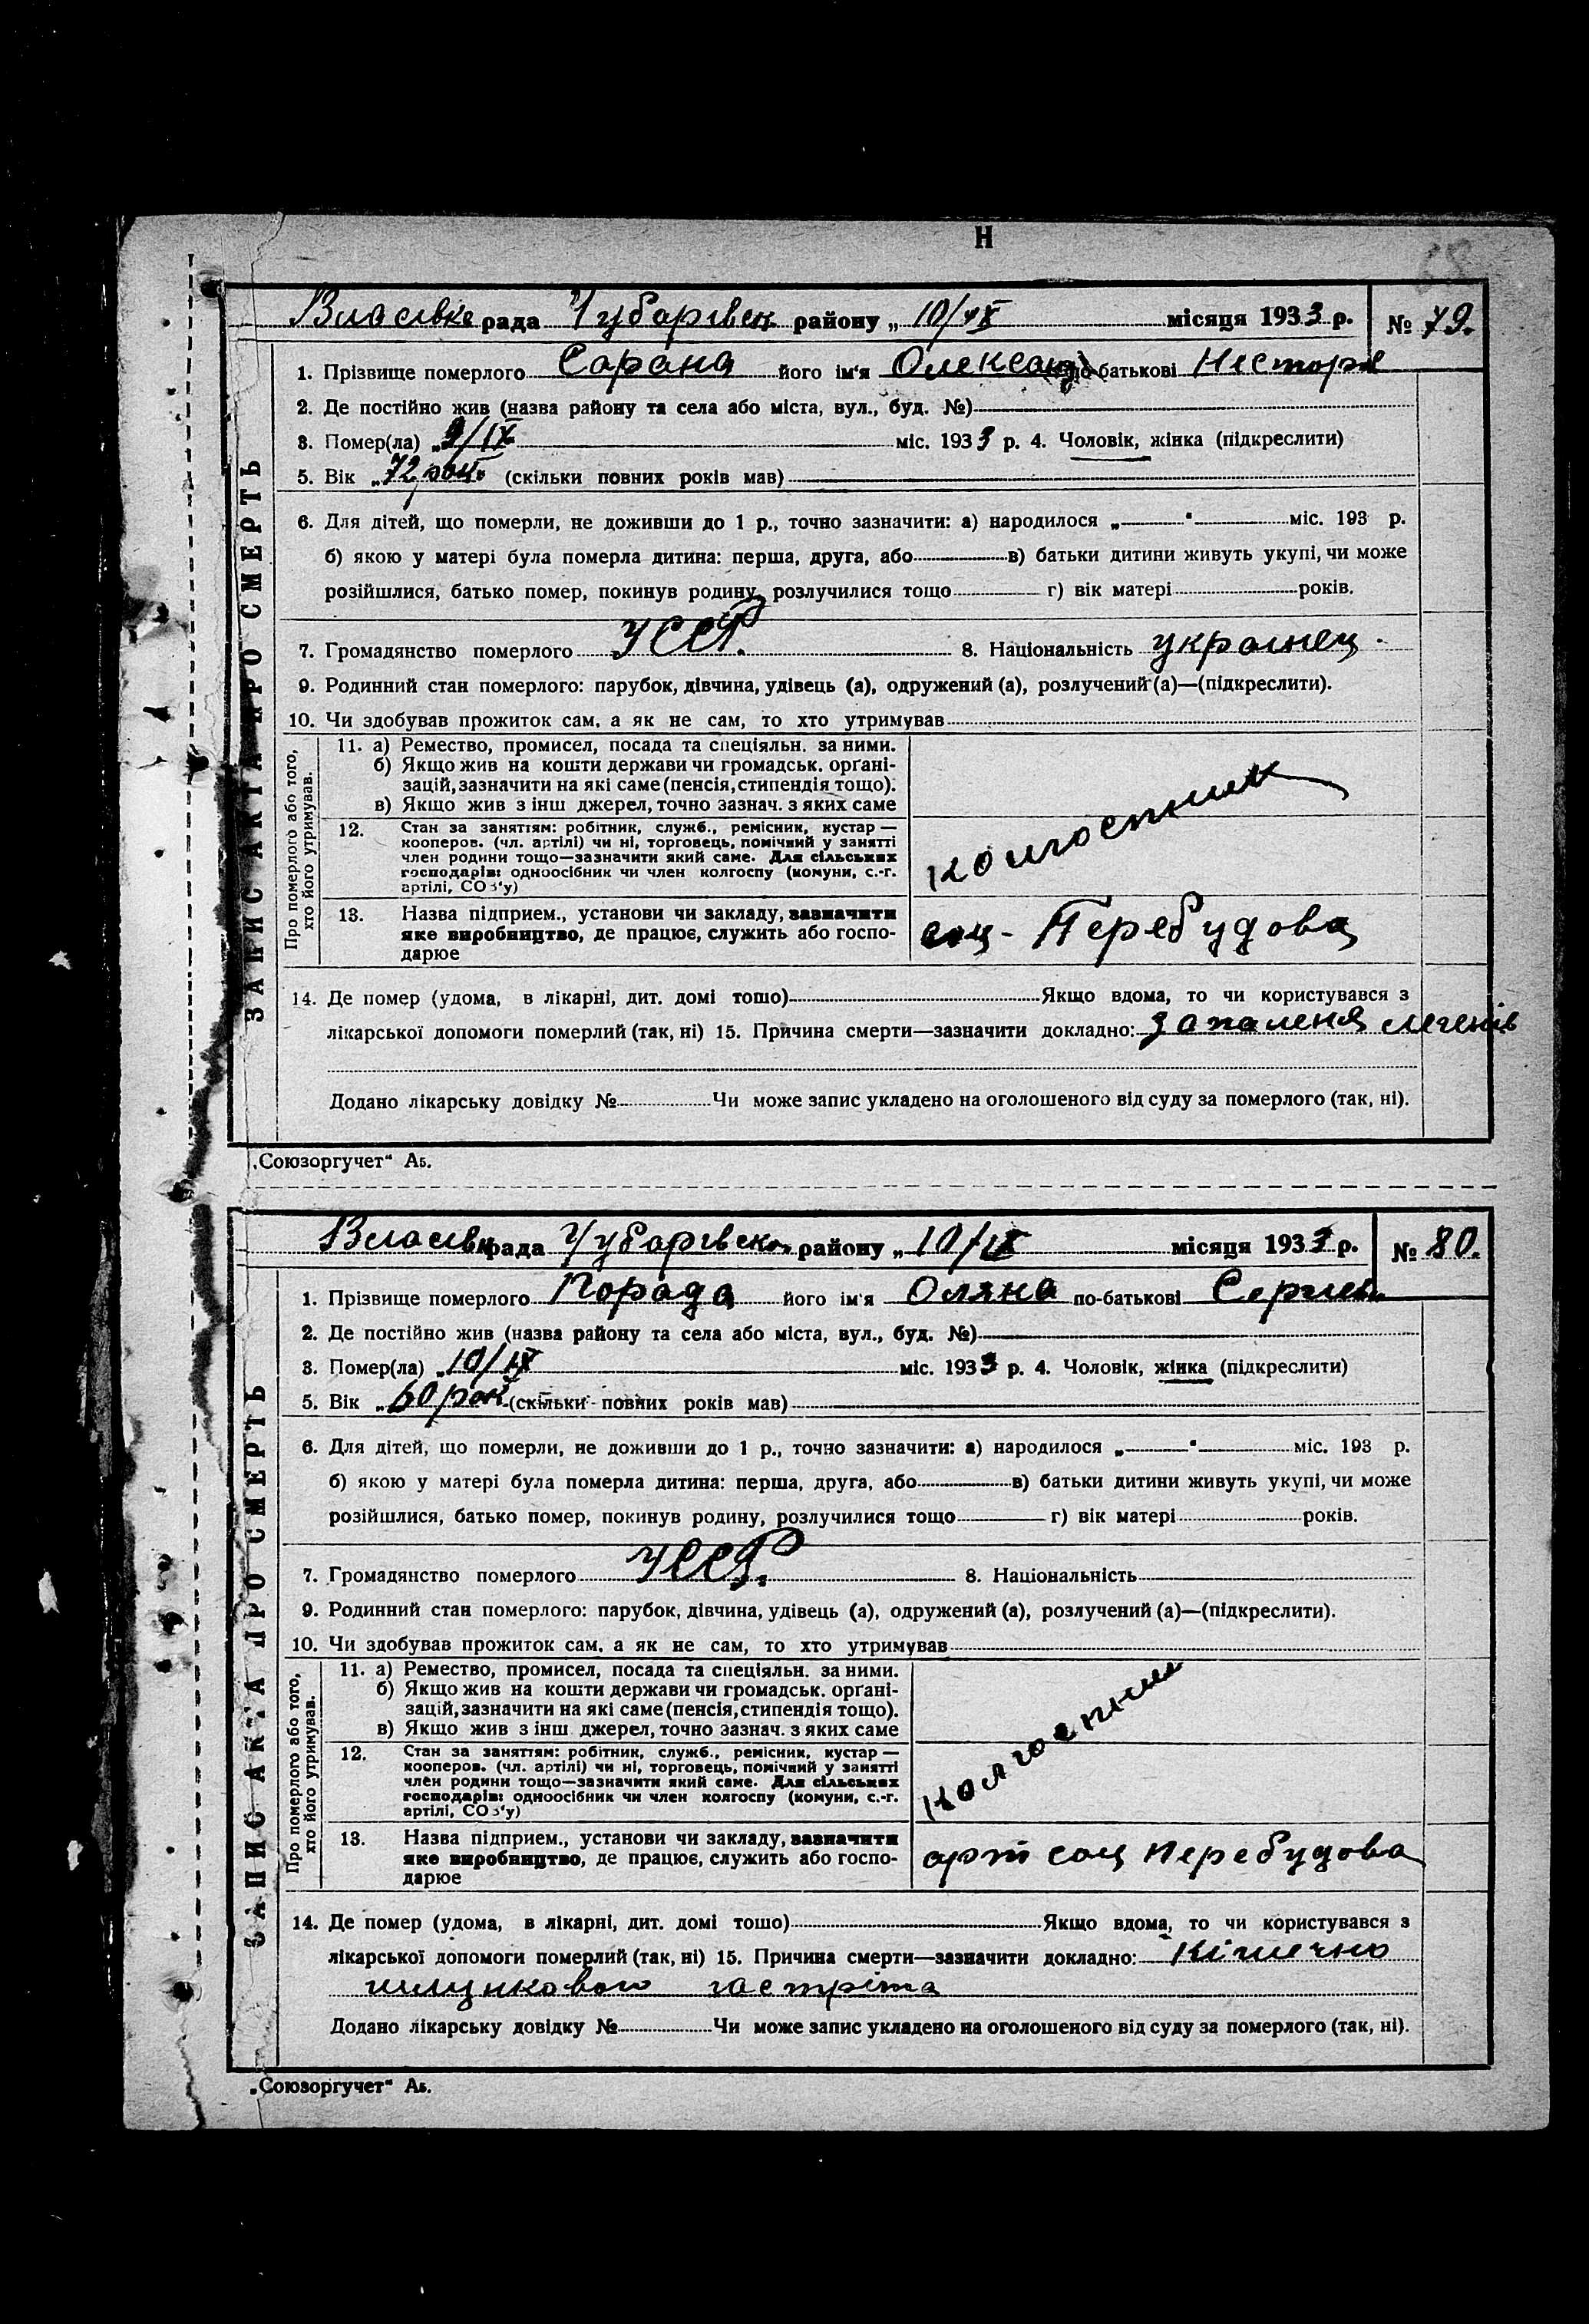 Н
Власівка рада Чубарівськ району „ 10/IX місяця 1933 р. № 79.
1. Прізвище померлого Сарана його ім'я Олександ по батькові Нестор
2. Де постійно жив (назва району та села або міста, вул., буд. №)
3. Помер(ла) „ 9/IX міс. 1933 р. 4. Чоловік, жінка (підкреслити)
5. Вік „ 72 рок. (скільки повних років мав)
6. Для дітей, що померли, не доживши до 1 р., точно зазначити: а) народилося „ " міс. 193 р.
б) якою у матері була померла дитина: перша, друга, або в) батьки дитини живуть укупі, чи може
розійшлися, батько помер, покинув родину, розлучилися тощо г) вік матері років.
7. Громадянство померлого УССР. 8. Національність украинец.
9. Родинний стан померлого: парубок, дівчина, удівець (а), одружений (а), розлучений (а)—(підкреслити).
10. Чи здобував прожиток сам, а як не сам, то хто утримував
ЗАПИС АКТА ПРО СМЕРТЬ
Про померлого або того,
хто його утримував.
11. а) Ремество, промисел, посада та спеціяльн. за ними.
б) Якщо жив на кошти держави чи громадськ. орґані-
зацій, зазначити на які саме (пенсія, стипендія тощо).
в) Якщо жив з інш джерел, точно зазнач. з яких саме
12. Стан за заняттям: робітник, служб., ремісник, кустар—
кооперов. (чл. артілі) чи ні, торговець, помічний у занятті
член родини тощо—зазначити який саме. Для сільських
господарів: одноосібник чи член колгоспу (комуни, с.-г.
артілі, СОЗ'у)
колгоспник
13. Назва підприєм., установи чи закладу, зазначити
яке виробництво, де працює, служить або госпо-
дарює
соц- Перебудова
14. Де помер (удома, в лікарні, дит. домі тощо) Якщо вдома, то чи користувався з
лікарської допомоги померлий (так, ні) 15. Причина смерти—зазначити докладно: запаленя легенів
Додано лікарську довідку № Чи може запис укладено на оголошеного від суду за померлого (так, ні).
„Союзоргучет" А5.
Власівк рада Чубарівска району „ 10/IX місяця 1933 р. № 80.
1. Прізвище померлого Порада його ім'я Оляна по-батькові Сергиев
2. Де постійно жив (назва району та села або міста, вул., буд. №)
3. Помер(ла) „ 10/IX міс. 1933 р. 4. Чоловік, жінка (підкреслити)
5. Вік „ 60 рок. (скільки повних років мав)
6. Для дітей, що померли, не доживши до 1 р., точно зазначити: а) народилося „ " міс. 193 р.
б) якою у матері була померла дитина: перша, друга, або в) батьки дитини живуть укупі, чи може
розійшлися, батько помер, покинув родину, розлучилися тощо г) вік матері років.
7. Громадянство померлого УССР. 8. Національність
9. Родинний стан померлого: парубок, дівчина, удівець (а), одружений (а), розлучений (а)—(підкреслити).
10. Чи здобував прожиток сам, а як не сам, то хто утримував
ЗАПИС АКТА ПРО СМЕРТЬ
Про померлого або того,
хто його утримував.
11. а) Ремество, промисел, посада та спеціяльн. за ними.
б) Якщо жив на кошти держави чи громадськ. орґані-
зацій, зазначити на які саме (пенсія, стипендія тощо).
в) Якщо жив з інш джерел, точно зазнач. з яких саме
12. Стан за заняттям: робітник, служб., ремісник, кустар—
кооперов. (чл. артілі) чи ні, торговець, помічний у занятті
член родини тощо—зазначити який саме. Для сільських
господарів: одноосібник чи член колгоспу (комуни, с.-г.
артілі, СОЗ'у)
колгоспник
13. Назва підприєм., установи чи закладу, зазначити
яке виробництво, де працює, служить або госпо-
дарює
арт соц Перебудова
14. Де помер (удома, в лікарні, дит. домі тощо) Якщо вдома, то чи користувався з
лікарської допомоги померлий (так, ні) 15. Причина смерти—зазначити докладно: Кішечно
гастріта
Додано лікарську довідку № Чи може запис укладено на оголошеного від суду за померлого (так, ні).
„Союзоргучет" А5.